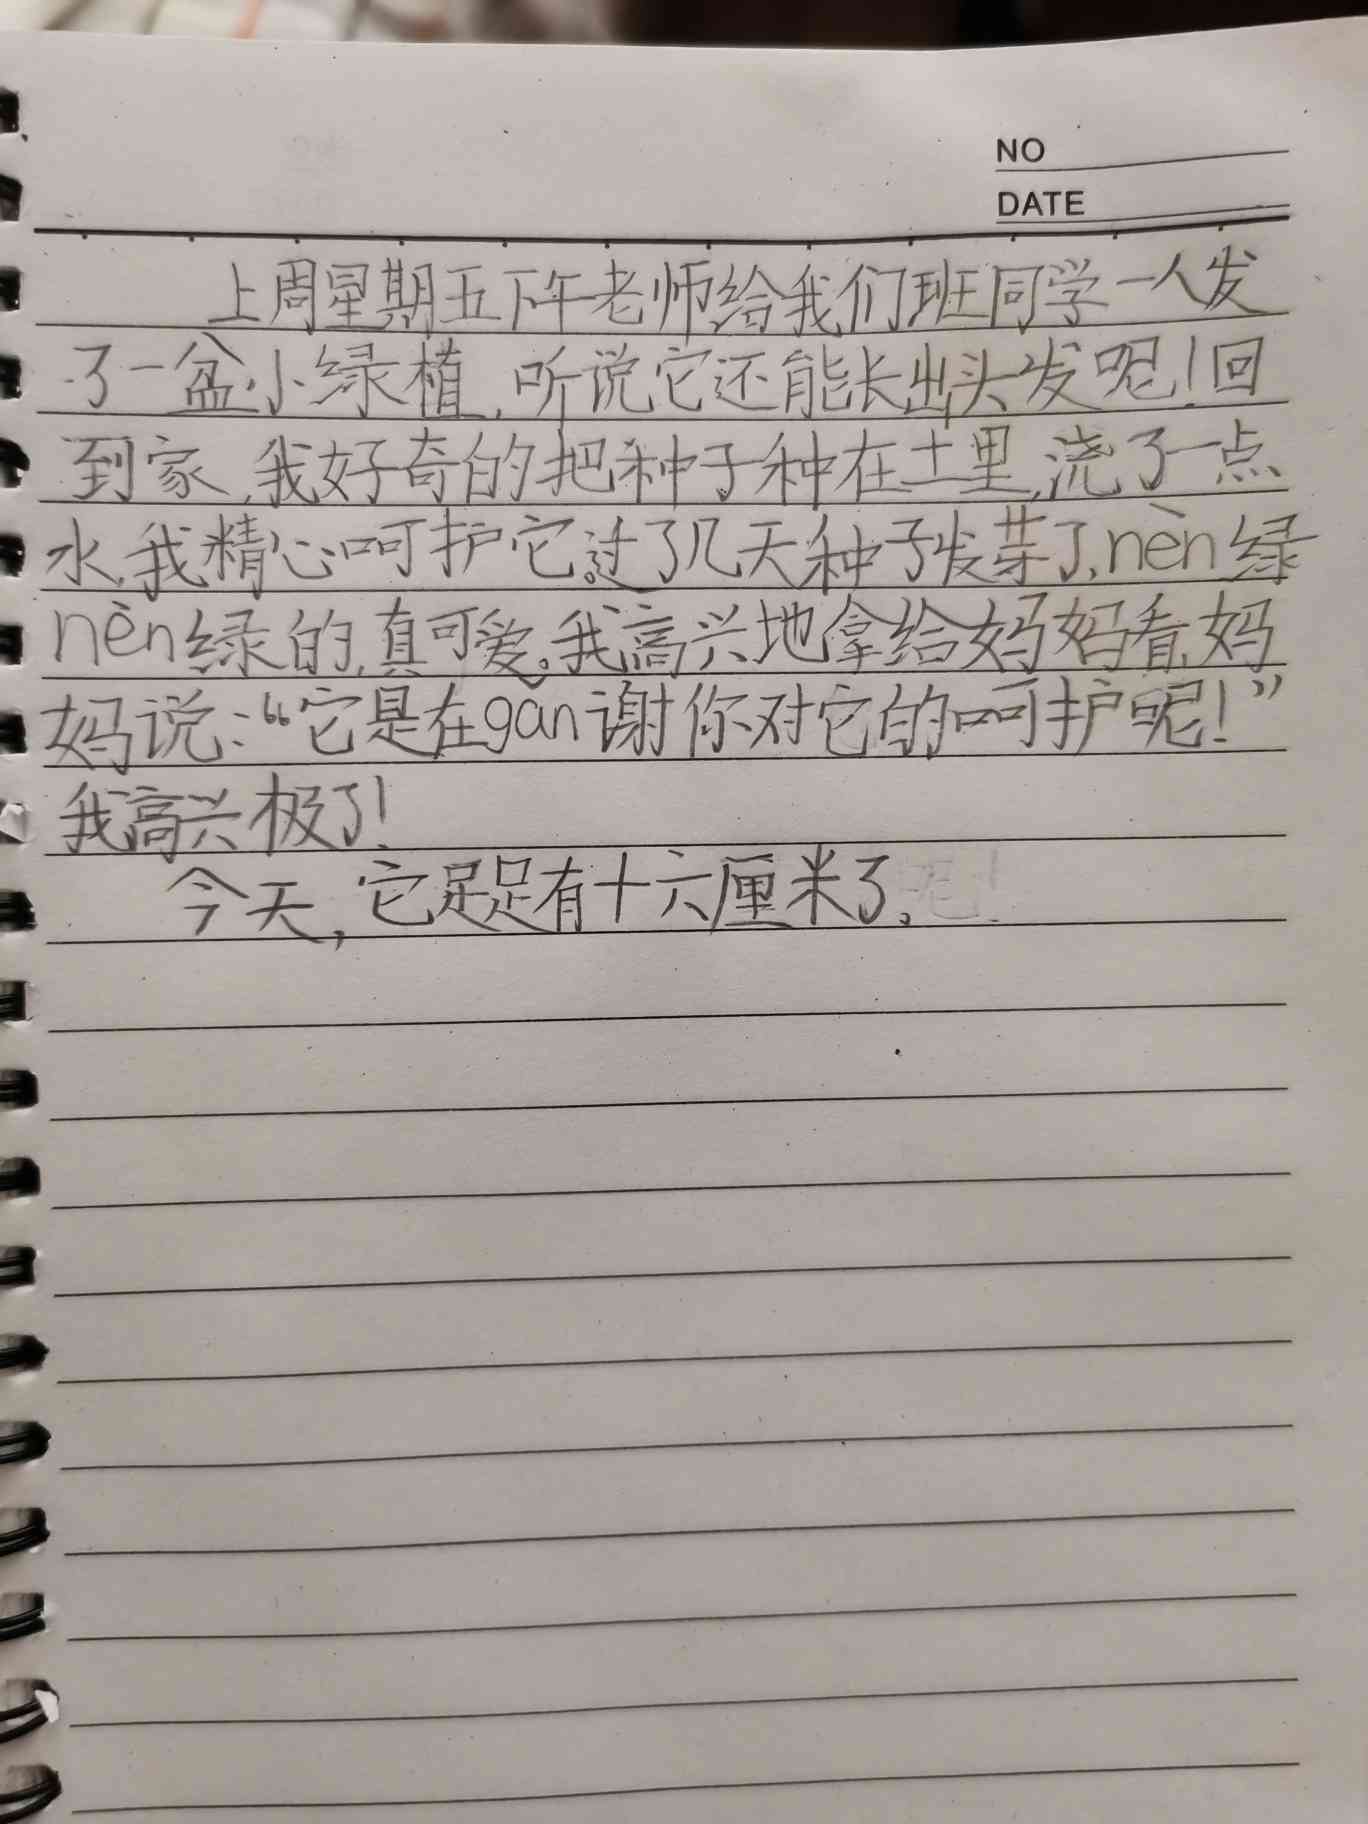 NO
DATE
上周星期五下午老师给我们班同学一人发
了一盆小绿植,听说它还能长出头发呢!回
到家,我好奇的把种子种在土里,浇了一点
水,我精心呵护它。过了几天种子发芽了,nèn绿
nèn绿的,真可爱。我高兴地拿给妈妈看,妈
妈说:“它是在gǎn谢你对它的呵护呢!”
我高兴极了!
今天,它足足有十六厘米了。